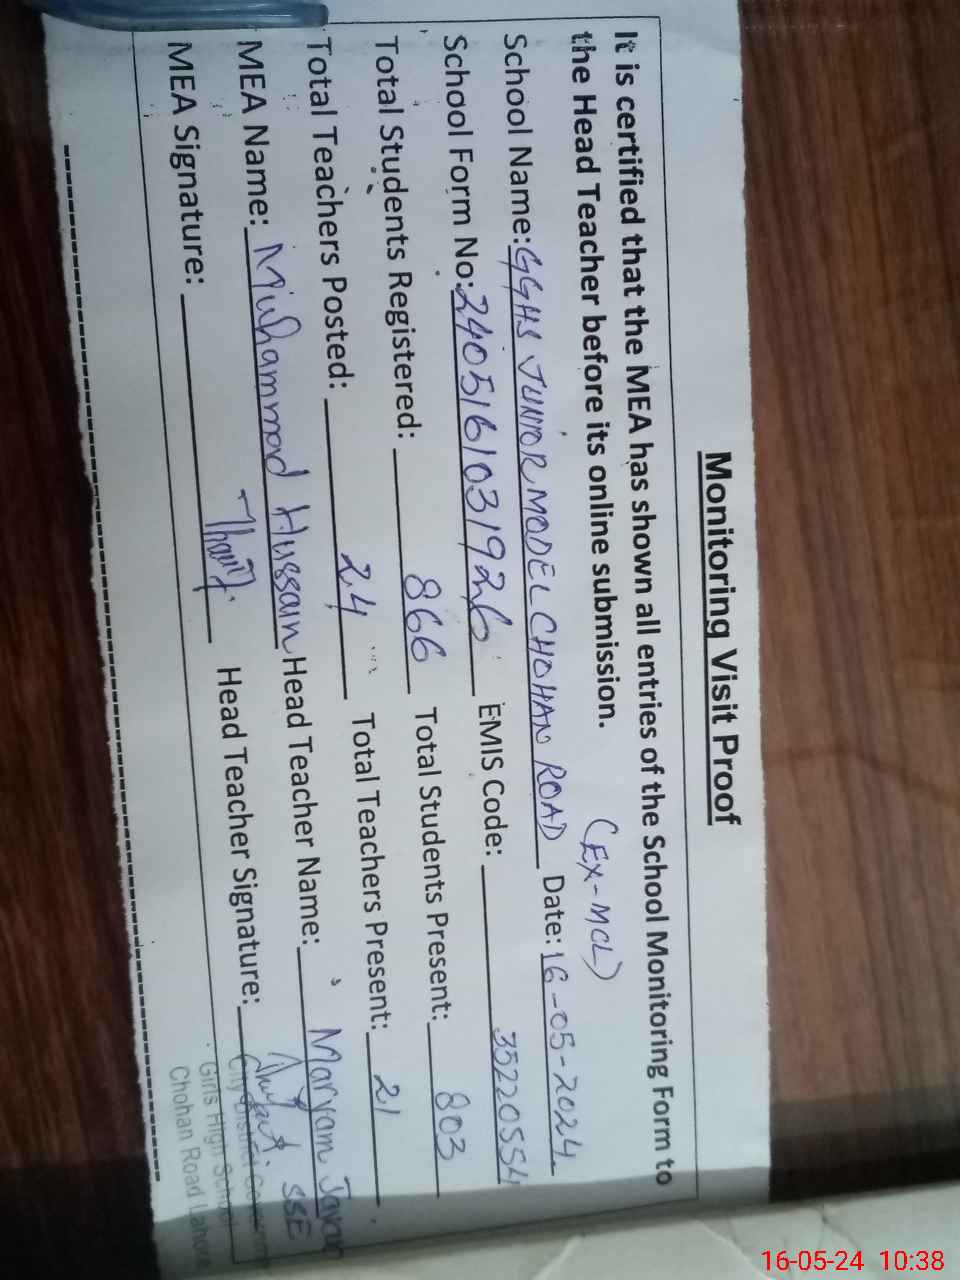 Monitoring Visit Proof
It is certified that the MEA has shown all entries of the School Monitoring Form to
the Head Teacher before its online submission.
(EX-MCL)
School Name: GGHS JUNIOR MODEL CHOHAN ROAD Date: 16-05-2024
School Form No: 2405161031926 EMIS Code: 35220554
Total Students Registered: 866 Total Students Present: 803
Total Teachers Posted: 24 Total Teachers Present: 21
MEA Name: Muhammad Hussain Head Teacher Name: Maryam
MEA Signature: Head Teacher Signature: SSE
City District
Girls High School
Chohan Road Lahore
16-05-24 10:38